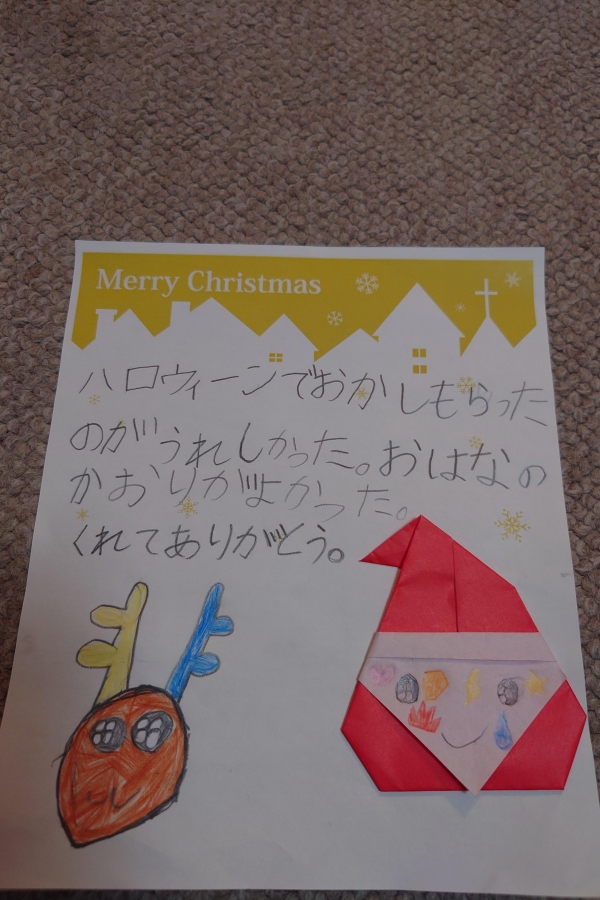 Merry Christmas
ハロウィーンでおかしもらった
のがうれしかった。おはなの
かおりがよかった。
くれてありがとう。